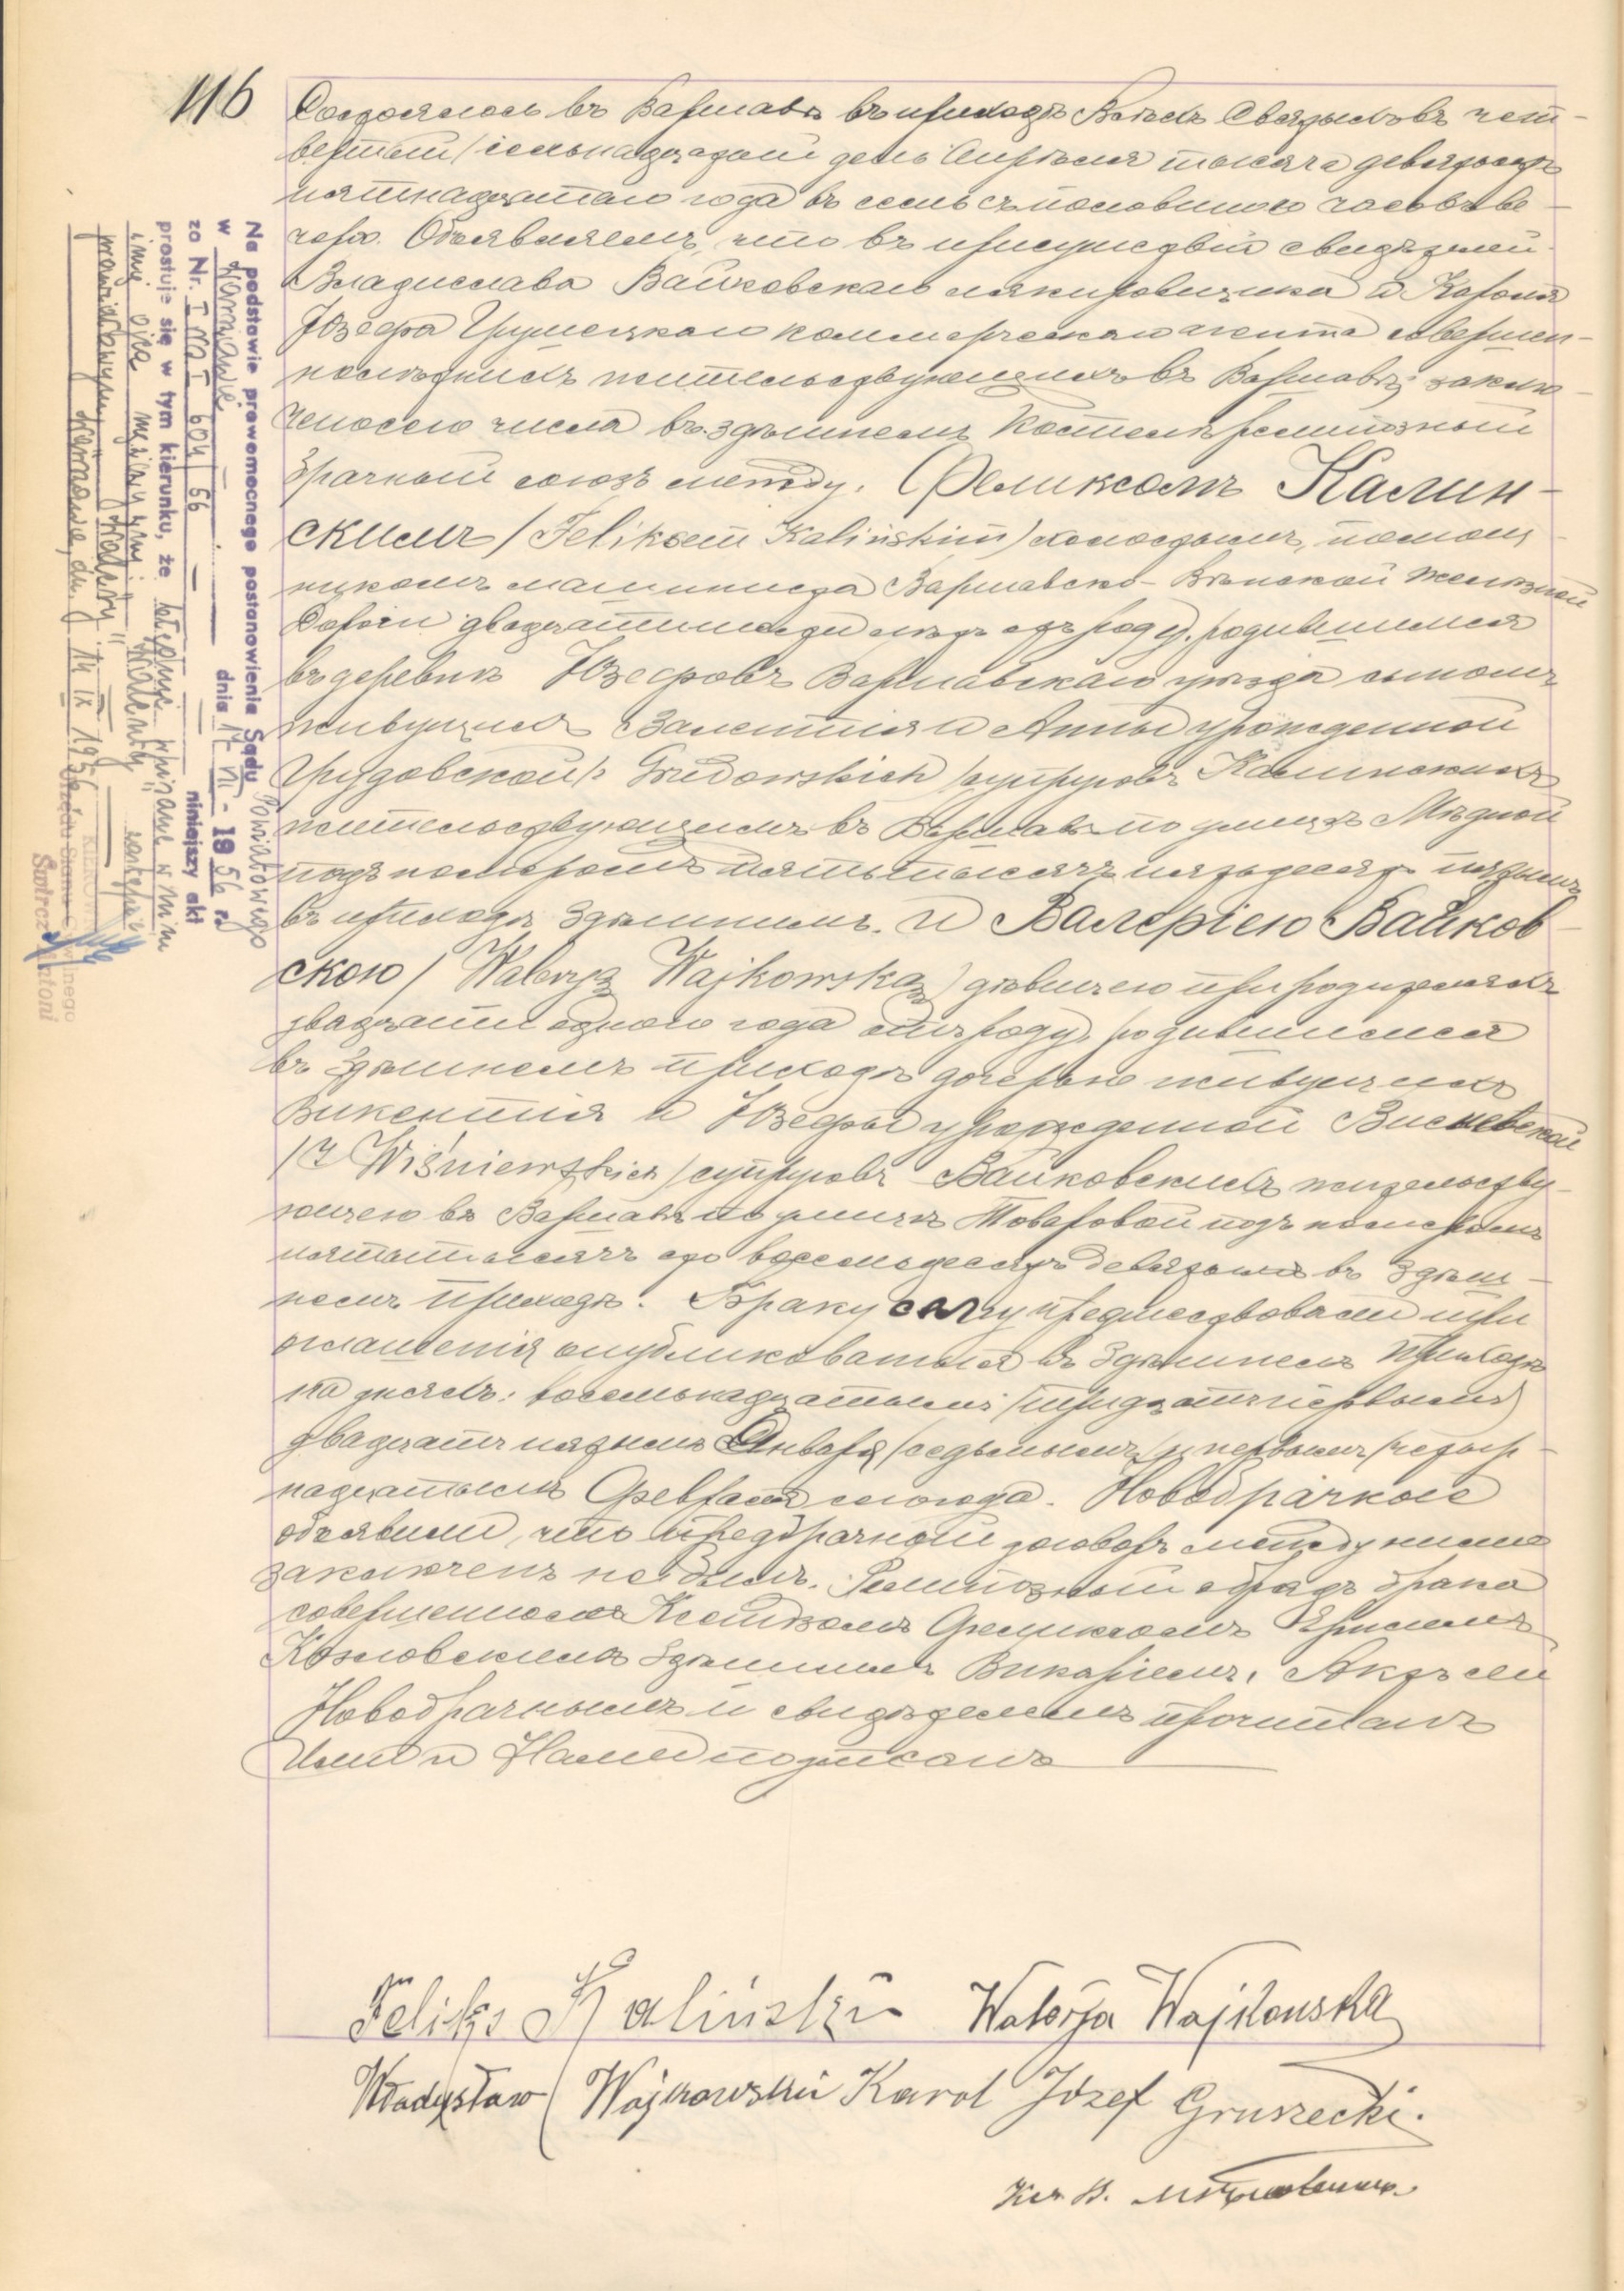 116
Состоялось въ Варшавѣ въ приходѣ Всѣхъ Святыхъ въ чет-
вертый /семнадцатый день Апрѣля тысяча девятьсотъ
пятнадцатаго года въ семь съ половиною часовъ ве-
чера. Объявляемъ, что въ присутствіи свидѣтелей
Владислава Вайковскаго лакировщика и Кароля
Юзефа Грушецкаго коммерческаго агента совершен-
нолѣтнихъ жительствующихъ въ Варшавѣ, заклю-
чено сего числа въ здѣшнемъ Костелѣ религіозный
брачный союзъ между: Феликсомъ Калин-
скимъ / Feliksem Kalińskim / холостымъ, помощ-
никомъ машиниста Варшавско-Вѣнской Желѣзной
Дороги двадцати лѣтъ отъ роду, родившимся
въ деревнѣ Юзефовъ Варшавскаго уѣзда сыномъ
живущихъ Валентія и Анны урожденной
Грудовской /z Grudowskich / супруговъ Калинскихъ
жительствующимъ въ Варшавѣ по улицѣ Мѣдной
подъ номеромъ пять тысячъ пятьдесятъ пятымъ
въ приходѣ здѣшнимъ. и Валеріею Вайков-
скою / Waleryą Wajkowską / дѣвицею при родителяхъ
двадцати одного года отъ роду, родившеюся
въ здѣшнемъ приходѣ дочерью живущихъ
Викентія и Юзефы урожденной Висневской
/z Wiśniewskich / супруговъ Вайковскихъ жительству-
ющею въ Варшавѣ по улицѣ Товаровой подъ номеромъ
пять тысячъ сто восемьдесятъ девятымъ въ здѣш-
немъ приходѣ. Браку сему предшествовали три
оглашенія опубликованныя въ здѣшнемъ Приходѣ
на дняхъ: восемьнадцатымъ /тридцать первымъ/
двадцать пятымъ Января /седьмымъ/ и первымъ /четыр-
надцатымъ Февраля сего года. Новобрачные
объявили, что предбрачный договоръ между ними
заключенъ не былъ. Религіозный обрядъ брака
совершенъ Ксендзомъ Феликсомъ
Козловскимъ здѣшнимъ Викаріемъ. Актъ сей
Новобрачнымъ и свидѣтелямъ прочитанъ
Ими и Нами подписанъ
Feliks Kaliński Walerja Wajkowska
Władysław Wajkowski Karol Józef Gruszecki.
Na podstawie prawomocnego postanowienia Sądu Powiatowego
w Warszawie
za Nr. 604/56 dnia 1956 r. niniejszy akt
prostuje się w tym kierunku, że błędnie wpisane w nim
imię ojca
Warszawa, dn. 14 IX 1956